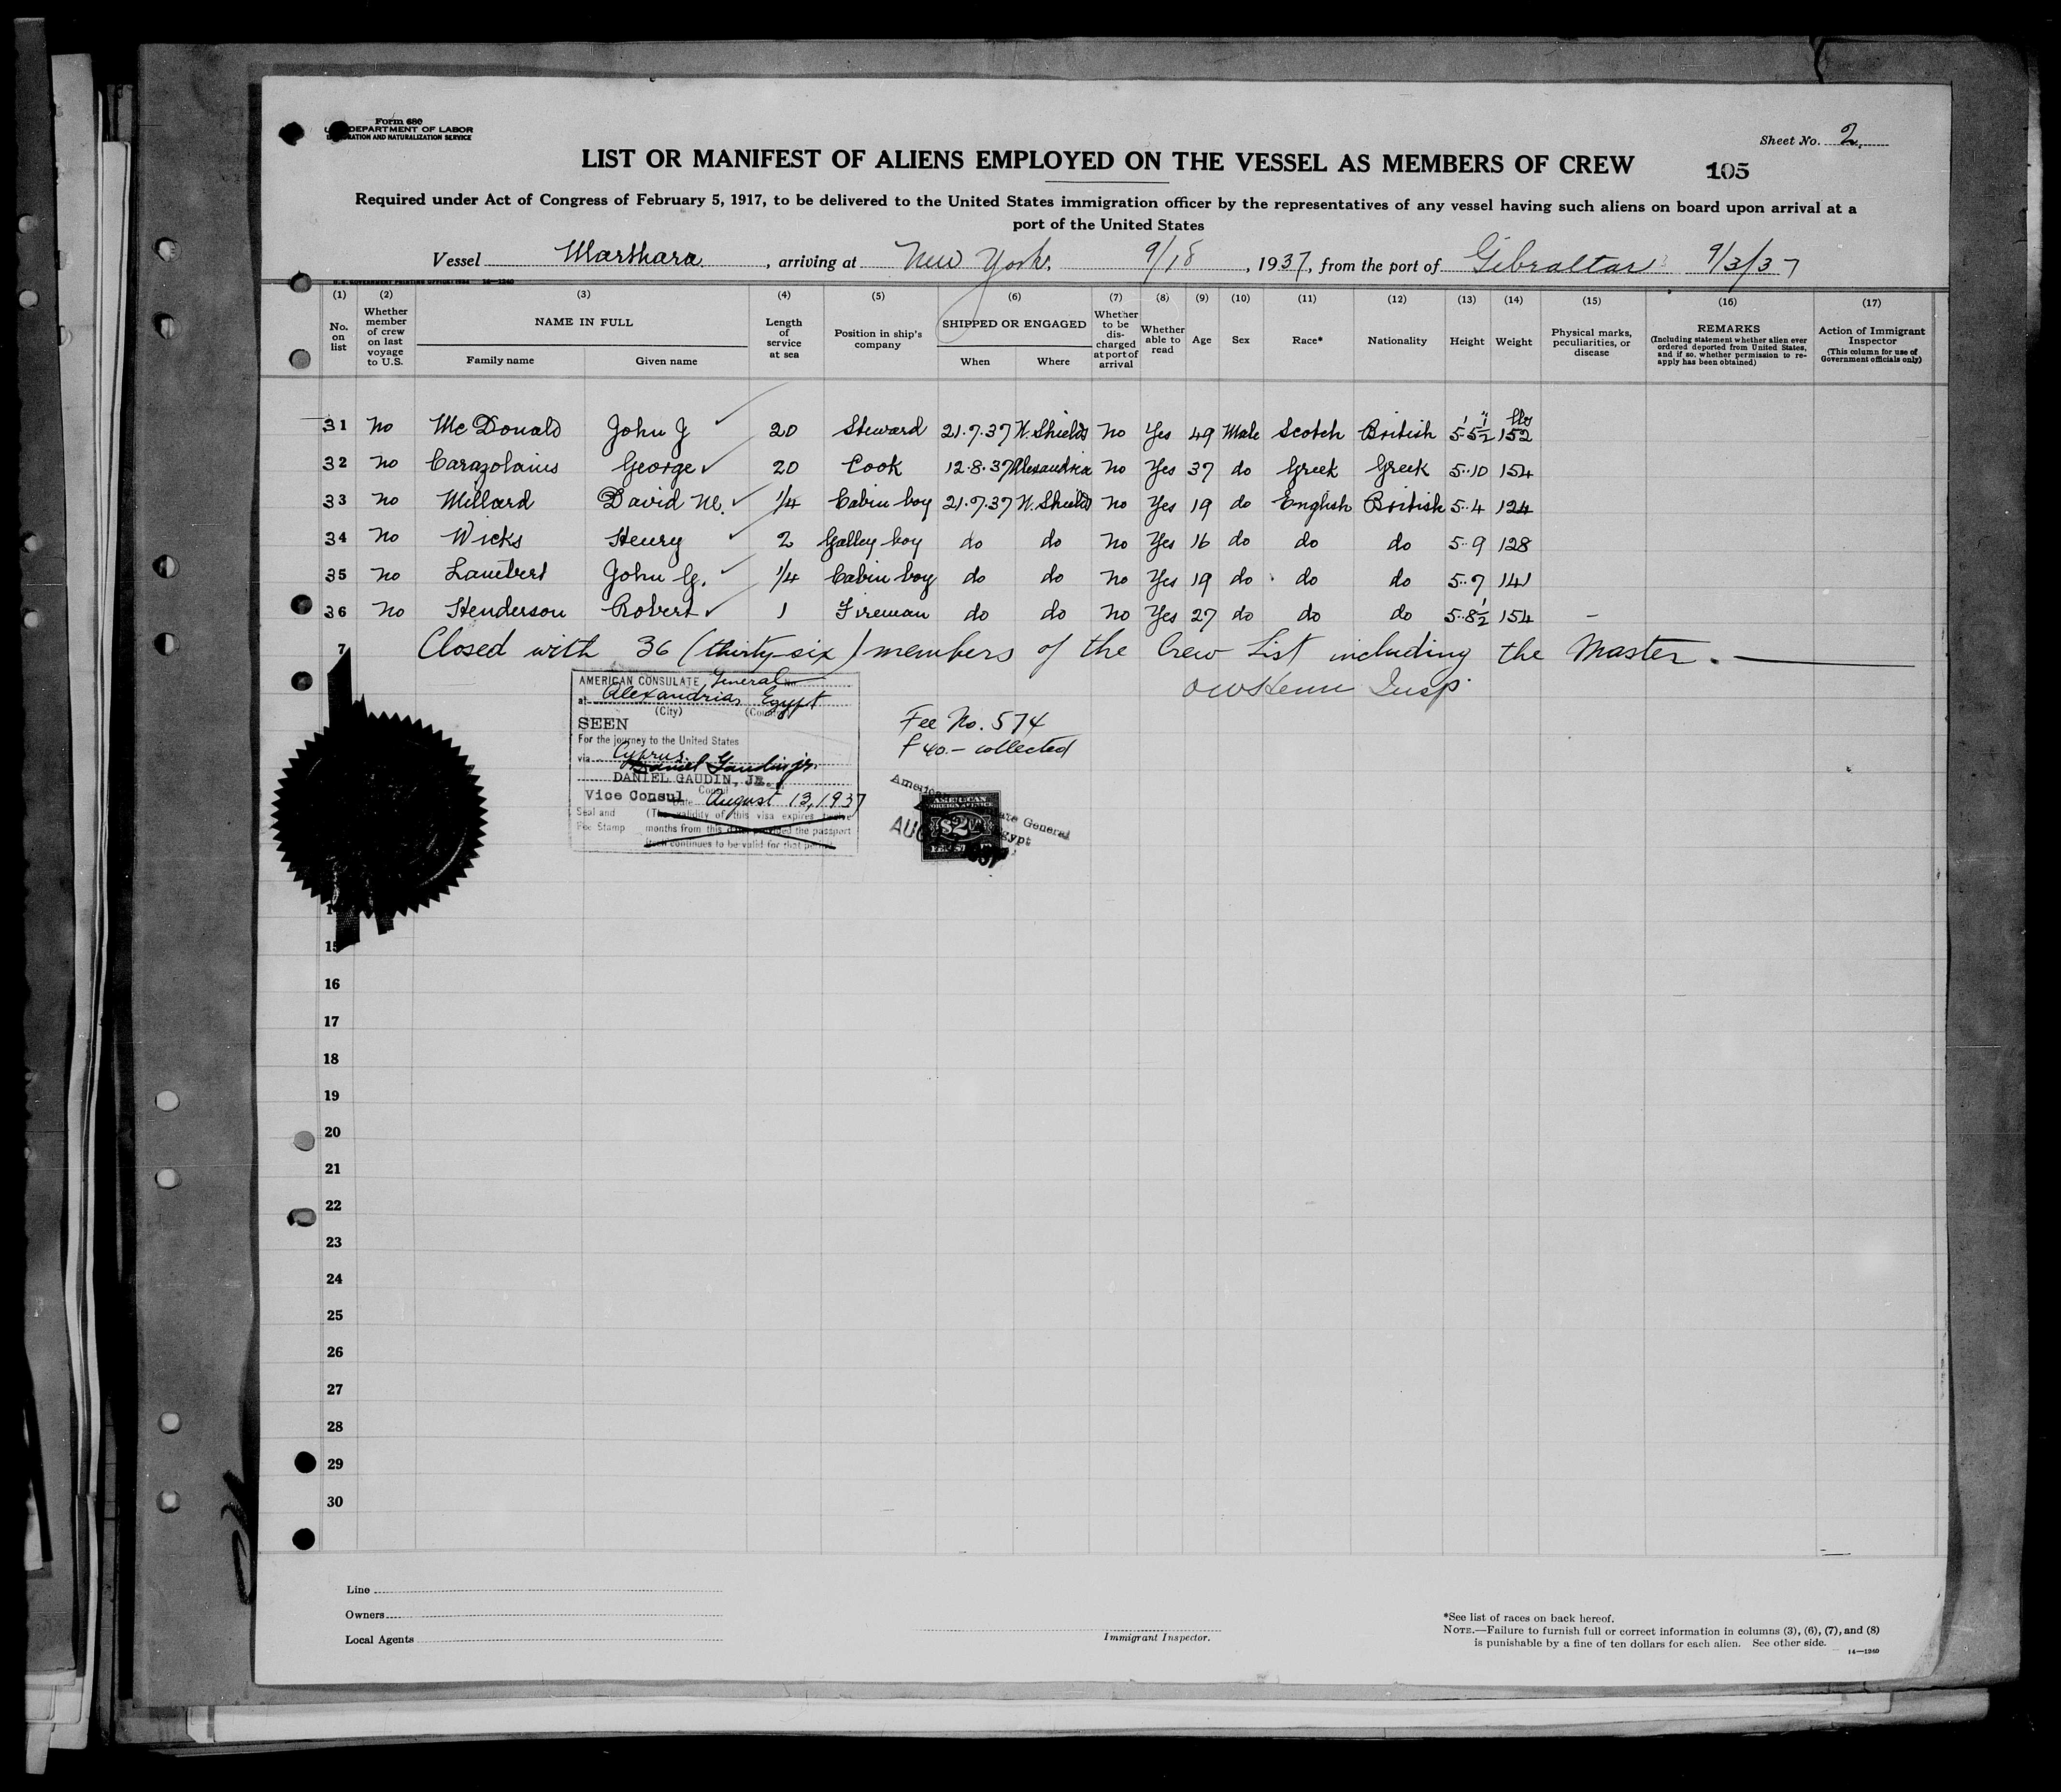 Form 680
DEPARTMENT OF LABOR
IMMIGRATION AND NATURALIZATION SERVICE
Sheet No. 2.
LIST OR MANIFEST OF ALIENS EMPLOYED ON THE VESSEL AS MEMBERS OF CREW
105
Required under Act of Congress of February 5, 1917, to be delivered to the United States immigration officer by the representatives of any vessel having such aliens on board upon arrival at a
port of the United States
Vessel Marthara, arriving at New York, 9/18, 1937, from the port of Gibraltar 9/3/37
U. S. GOVERNMENT PRINTING OFFICE: 1936 14—1240
(1) (2) (3) (4) (5) (6) (7) (8) (9) (10) (11) (12) (13) (14) (15) (16) (17)
No. on list
Whether member of crew on last voyage to U.S.
NAME IN FULL
Family name
Given name
Length of service at sea
Position in ship's company
SHIPPED OR ENGAGED
When
Where
Whether to be discharged at port of arrival
Whether able to read
Age
Sex
Race*
Nationality
Height
Weight
Physical marks, peculiarities, or disease
REMARKS
(Including statement whether alien ever ordered deported from United States, and if so, whether permission to reapply has been obtained)
Action of Immigrant Inspector
(This column for use of Government officials only)
31 No McDonald John J 20 Steward 21.7.37 N. Shields No Yes 49 Male Scotch British 5'5½" 152 lbs
32 No Carazolaius George 20 Cook 12.8.37 Alexandria No Yes 37 do Greek Greek 5..10 154
33 No Millard David M. ¼ Cabin boy 21.7.37 N. Shields No Yes 19 do English British 5..4 124
34 No Wicks Henry 2 Galley boy do do No Yes 16 do do do 5..9 128
35 No Lambert John G. ¼ Cabin boy do do No Yes 19 do do do 5..7 141
36 No Henderson Robert 1 Fireman do do No Yes 27 do do do 5..8½ 154 –
7 Closed with 36 (thirty-six) members of the Crew List including the Master.
Insp.
AMERICAN CONSULATE General
at Alexandria, Egypt
(City) (Country)
SEEN
For the journey to the United States
via Cyprus
Daniel Gaudin jr.
DANIEL GAUDIN, JR.
Vice Consul Consul
Date August 13, 1937
Seal and Fee Stamp
(The validity of this visa expires twelve
months from this date provided the passport
continues to be valid for that period
Fee No. 574
£40.– collected
AMERICAN
FOREIGN SERVICE
$2
FEE STAMP
General
Egypt
AUG
15
16
17
18
19
20
21
22
23
24
25
26
27
28
29
30
Line
Owners
Local Agents
Immigrant Inspector.
*See list of races on back hereof.
NOTE.—Failure to furnish full or correct information in columns (3), (6), (7), and (8)
is punishable by a fine of ten dollars for each alien. See other side.
14—1240